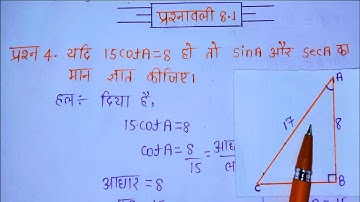 प्रश्नावली 8.1
प्रश्न 4. यदि 15cotA=8 हो तो sinA और secA का
मान ज्ञात कीजिए।
हल:- दिया है,
15·cotA=8
cotA = 8/15 = आधार
आधार = 8
A
17
8
C
B